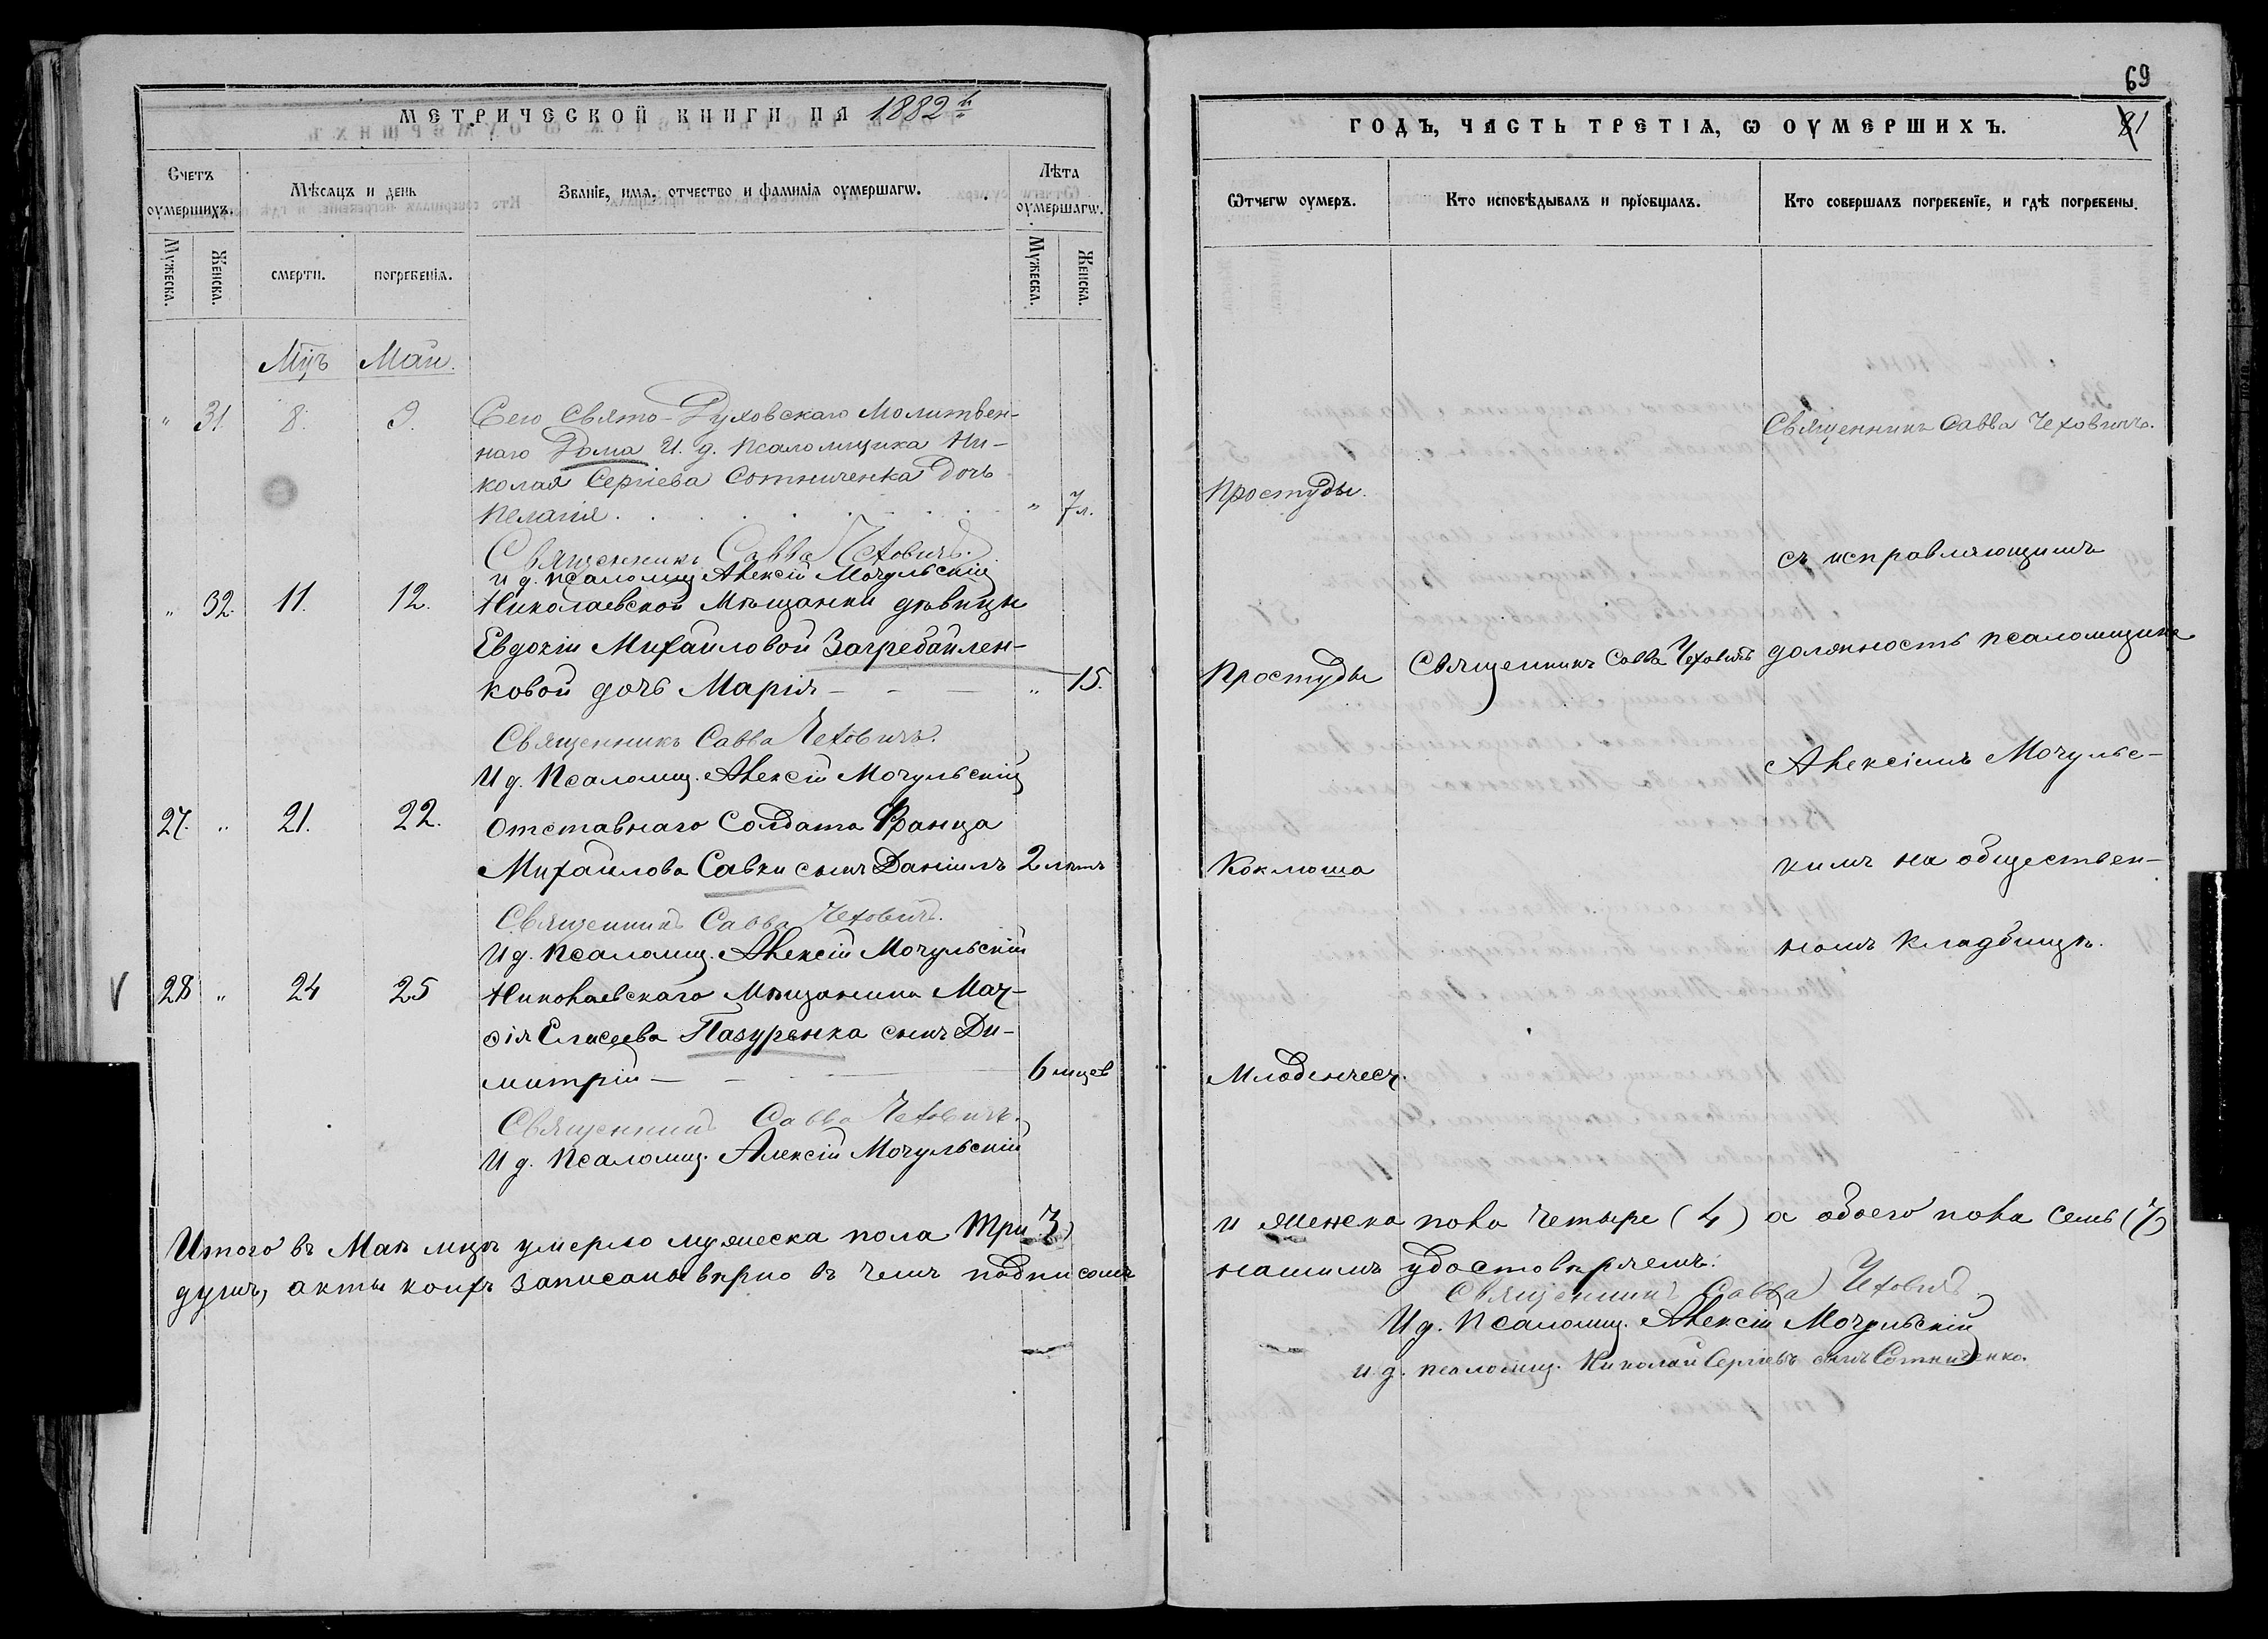 МЕТРИЧЕСКОЙ КНИГИ НА 1882й
Счетъ оумершихъ.
Мѣсяцъ и день
Званіе, имя, отчество и фамилія оумершагѡ.
Лѣта оумершагѡ.
Мужеска.
Женска.
смерти.
погребенія.
Мужеска.
Женска.
Мцъ Май.
" 31. 8. 9. Сего Свято-Духовскаго Молитвен-
наго Дома И. д. псаломщика Ни-
колая Сергіева Сотниченка дочь
Пелагія . . . . . . . " 7 л.
Священникъ Савва Чеховичъ.
и д. псаломщ Алексій Мочульскій
" 32. 11. 12. Николаевской Мѣщанки дѣвицы
Евдокіи Михайловой Загребайлен-
ковой дочь Марія — — — " 15.
Священникъ Савва Чеховичъ.
И д. Псаломщ. Алексій Мочульскій
27. " 21. 22. Отставнаго Солдата Франца
Михайлова Савки сынъ Даніилъ 2 лѣтъ
Священникъ Савва Чеховичъ.
И д. Псаломщ. Алексій Мочульскій
28 " 24 25 Николаевскаго Мѣщанина Мат-
ѳія Елисеева Пазуренка сынъ Ди-
митрій — — — 6 мцев
Священникъ Савва Чеховичъ.
И д. Псаломщ. Алексій Мочульскій
Итого въ Маѣ мцѣ умерло мужеска пола три 3)
душъ, акты коихъ записаны вѣрно въ чемъ подписомъ
69
81
ГОДЪ, ЧАСТЬ ТРЕТІЯ, Ѡ ОУМЕРШИХЪ.
Ѿчегѡ оумеръ.
Кто исповѣдывалъ и прїобщалъ.
Кто совершалъ погребенїе, и гдѣ погребены.
Священникъ Савва Чеховичъ.
Простуды.
съ исправляющимъ
Простуды Священникъ Савва Чеховичъ должность псаломщика
Алексіемъ Мочульс-
Коклюша кимъ на обществен-
номъ кладбищѣ.
Младенческ.
и женска пола четыре (4) а обоего пола семь (7)
нашимъ удостовѣряемъ:
Священникъ Савва Чеховичъ
И д. Псаломщ. Алексій Мочульскій
и. д. псаломщ. Николай Сергіевъ сынъ Сотниченко.